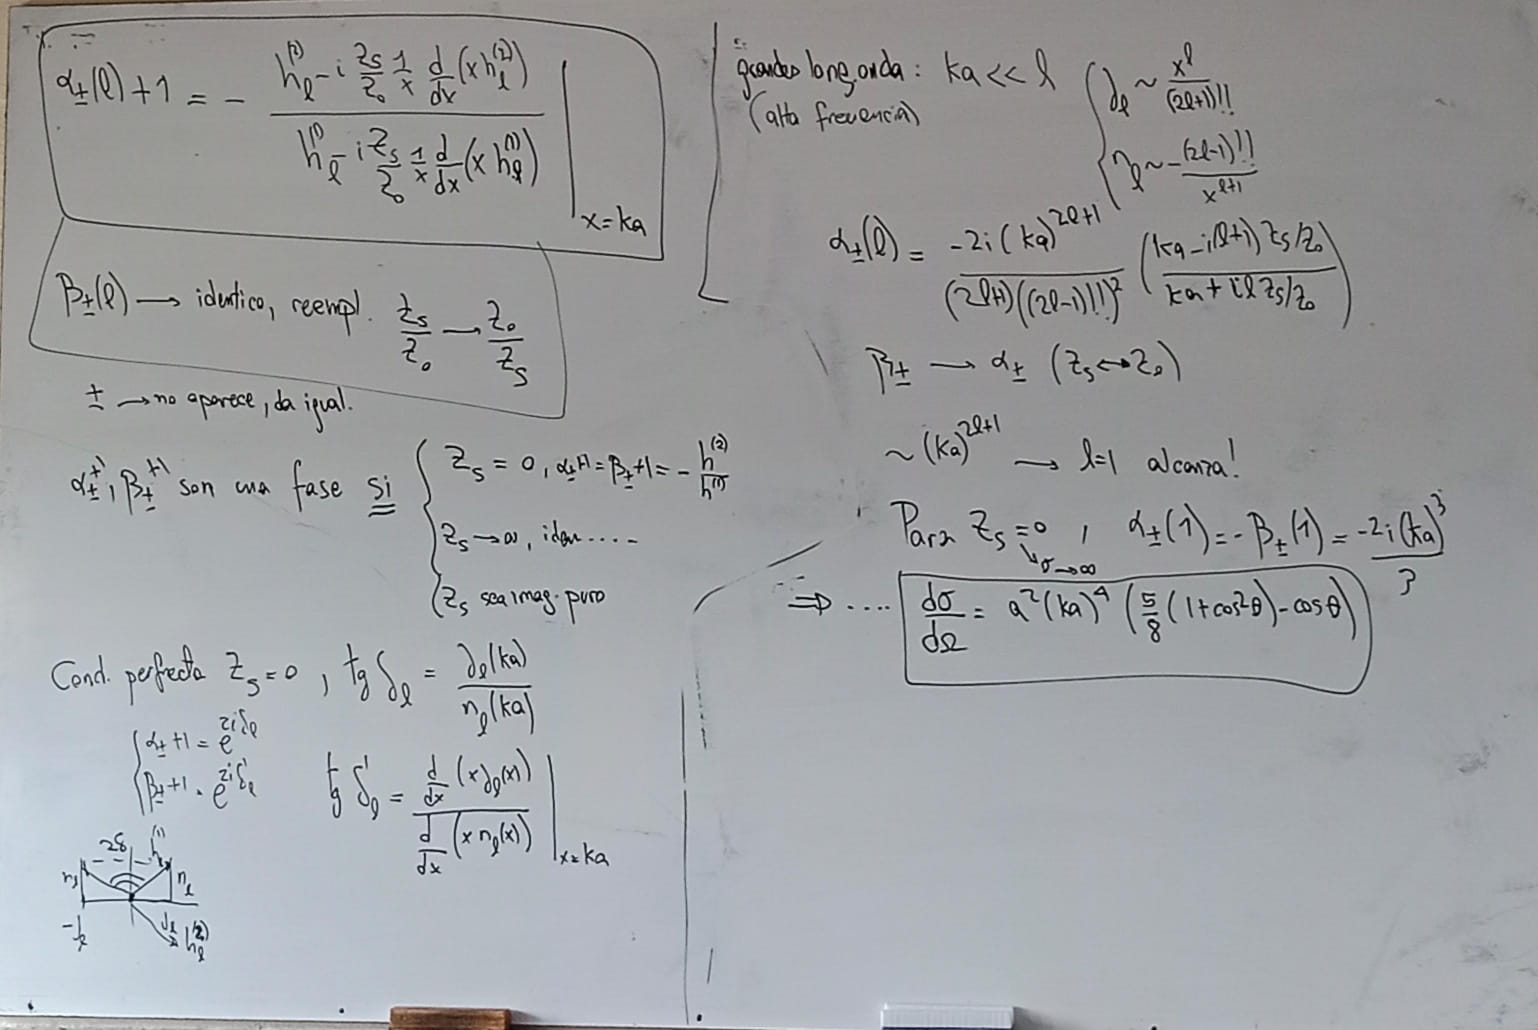 α±(l)+1 = - (h_l^(2) - i Zs/Z0 1/x d/dx (x h_l^(2))) / (h_l^(1) - i Zs/Z0 1/x d/dx (x h_l^(1))) | x=ka
β±(l) → identico, reempl. Zs/Z0 → Z0/Zs
± → no aparece, da igual.
α±^+1, β±^+1 son una fase si
Zs = 0, α±+1 = β±+1 = - h^(2)/h^(1)
Zs → ∞, idem ....
Zs sea imag. puro
Cond. perfecta Zs=0, tg δl = jl(ka)/nl(ka)
α±+1 = e^{2iδl}
β±+1 = e^{2iδ'l}
tg δ'l = d/dx (x jl(x)) / d/dx (x nl(x)) | x=ka
2δ h_l^(1)
nl nl
jl h_l^(2)
grandes long. onda: ka << l
(alta frecuencia)
jl ~ x^l/(2l+1)!!
nl ~ - (2l-1)!!/x^{l+1}
α±(l) = -2i(ka)^{2l+1} / (2l+1)((2l-1)!!)^2 ( (ka - i(l+1) Zs/Z0) / (ka + il Zs/Z0) )
β± → α± (Zs ↔ Z0)
~ (ka)^{2l+1} → l=1 alcanza!
Para Zs=0, α±(1) = - β±(1) = -2i(ka)^3/3
↳ σ→∞
⇒ .... dσ/dΩ = a²(ka)^4 (5/8 (1+cos²θ) - cosθ)